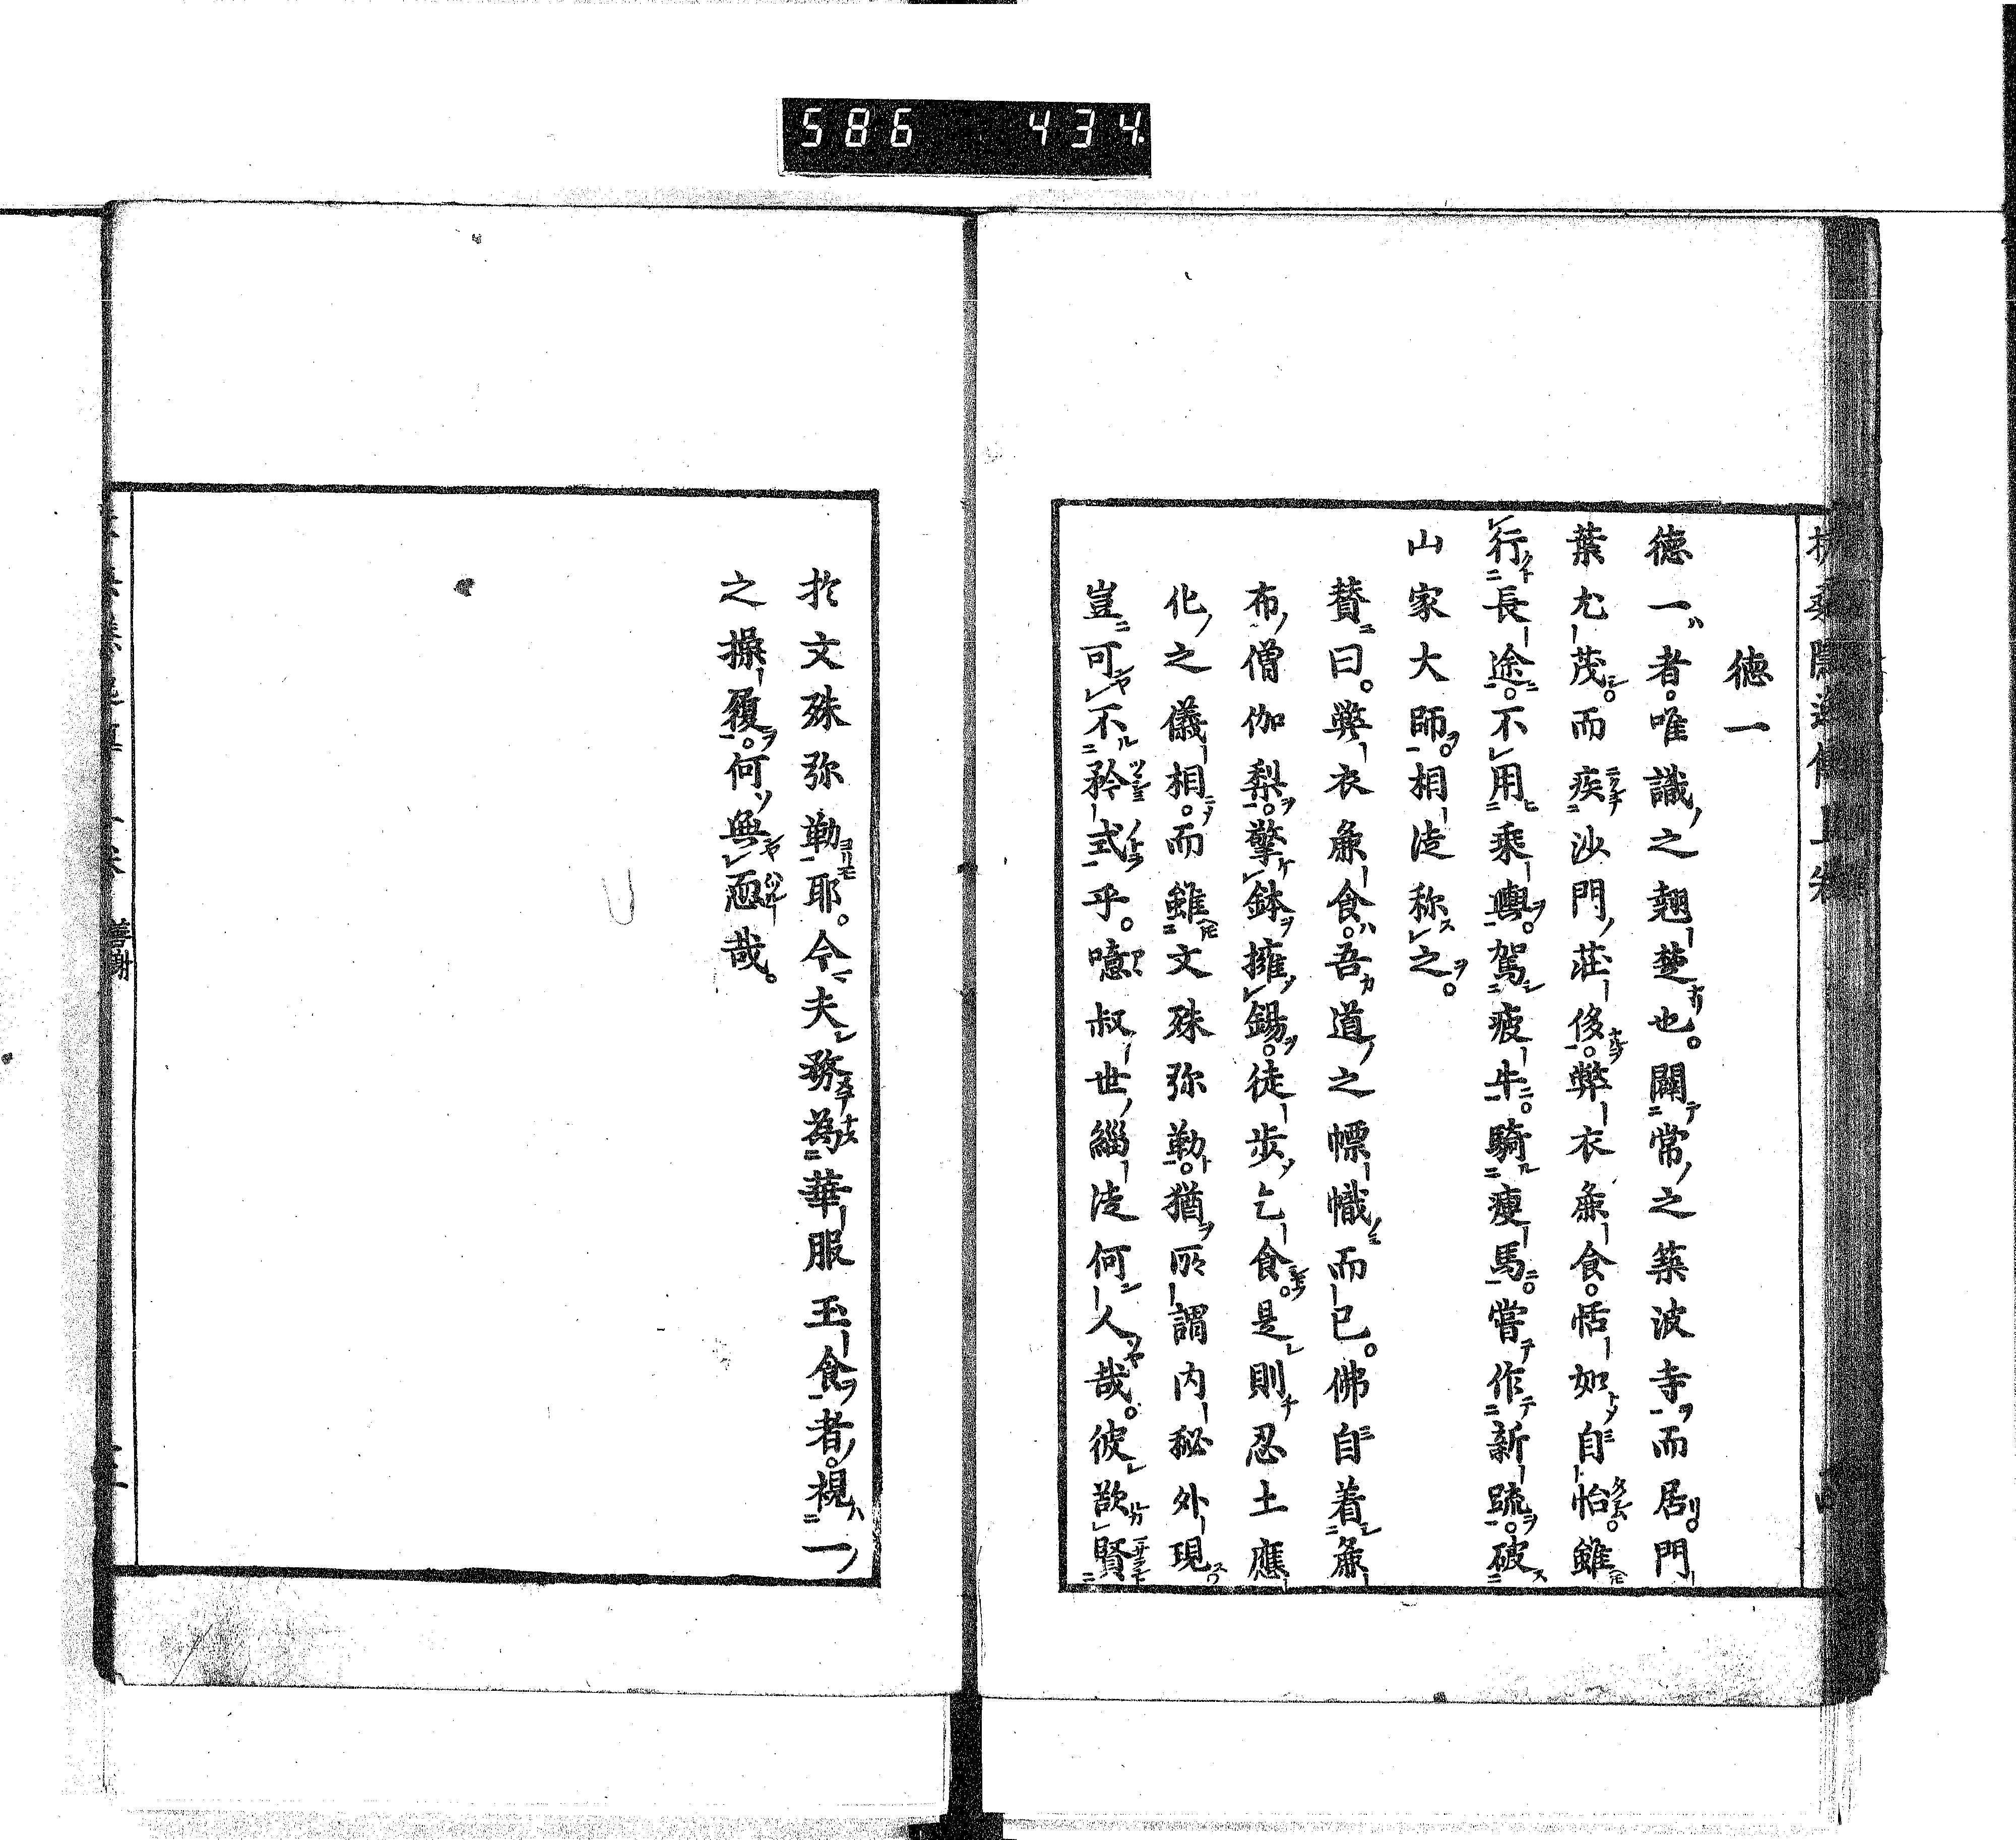 586 434
徳一
徳一者。唯識之翹楚也。闢常之築波寺而居。門
葉尤茂。而疾沙門莊侈。弊衣麁食。恬如自怡。雖
行長途。不用乘輿。駕疲牛。騎瘦馬。嘗作新疏。破
山家大師。相徒称之。
賛曰。弊衣麁食。吾道之幖幟而已。佛自着麁
布僧伽梨。擎鉢擁錫。徒步乞食。是則忍土應
化之儀相。而雖文殊弥勒。猶所謂内秘外現
豈可不矜式乎。噫叔世緇徒何人哉。彼欲賢
於文殊弥勒耶。今夫務為華服玉食者。視一
之操履。何無恧哉。
善謝